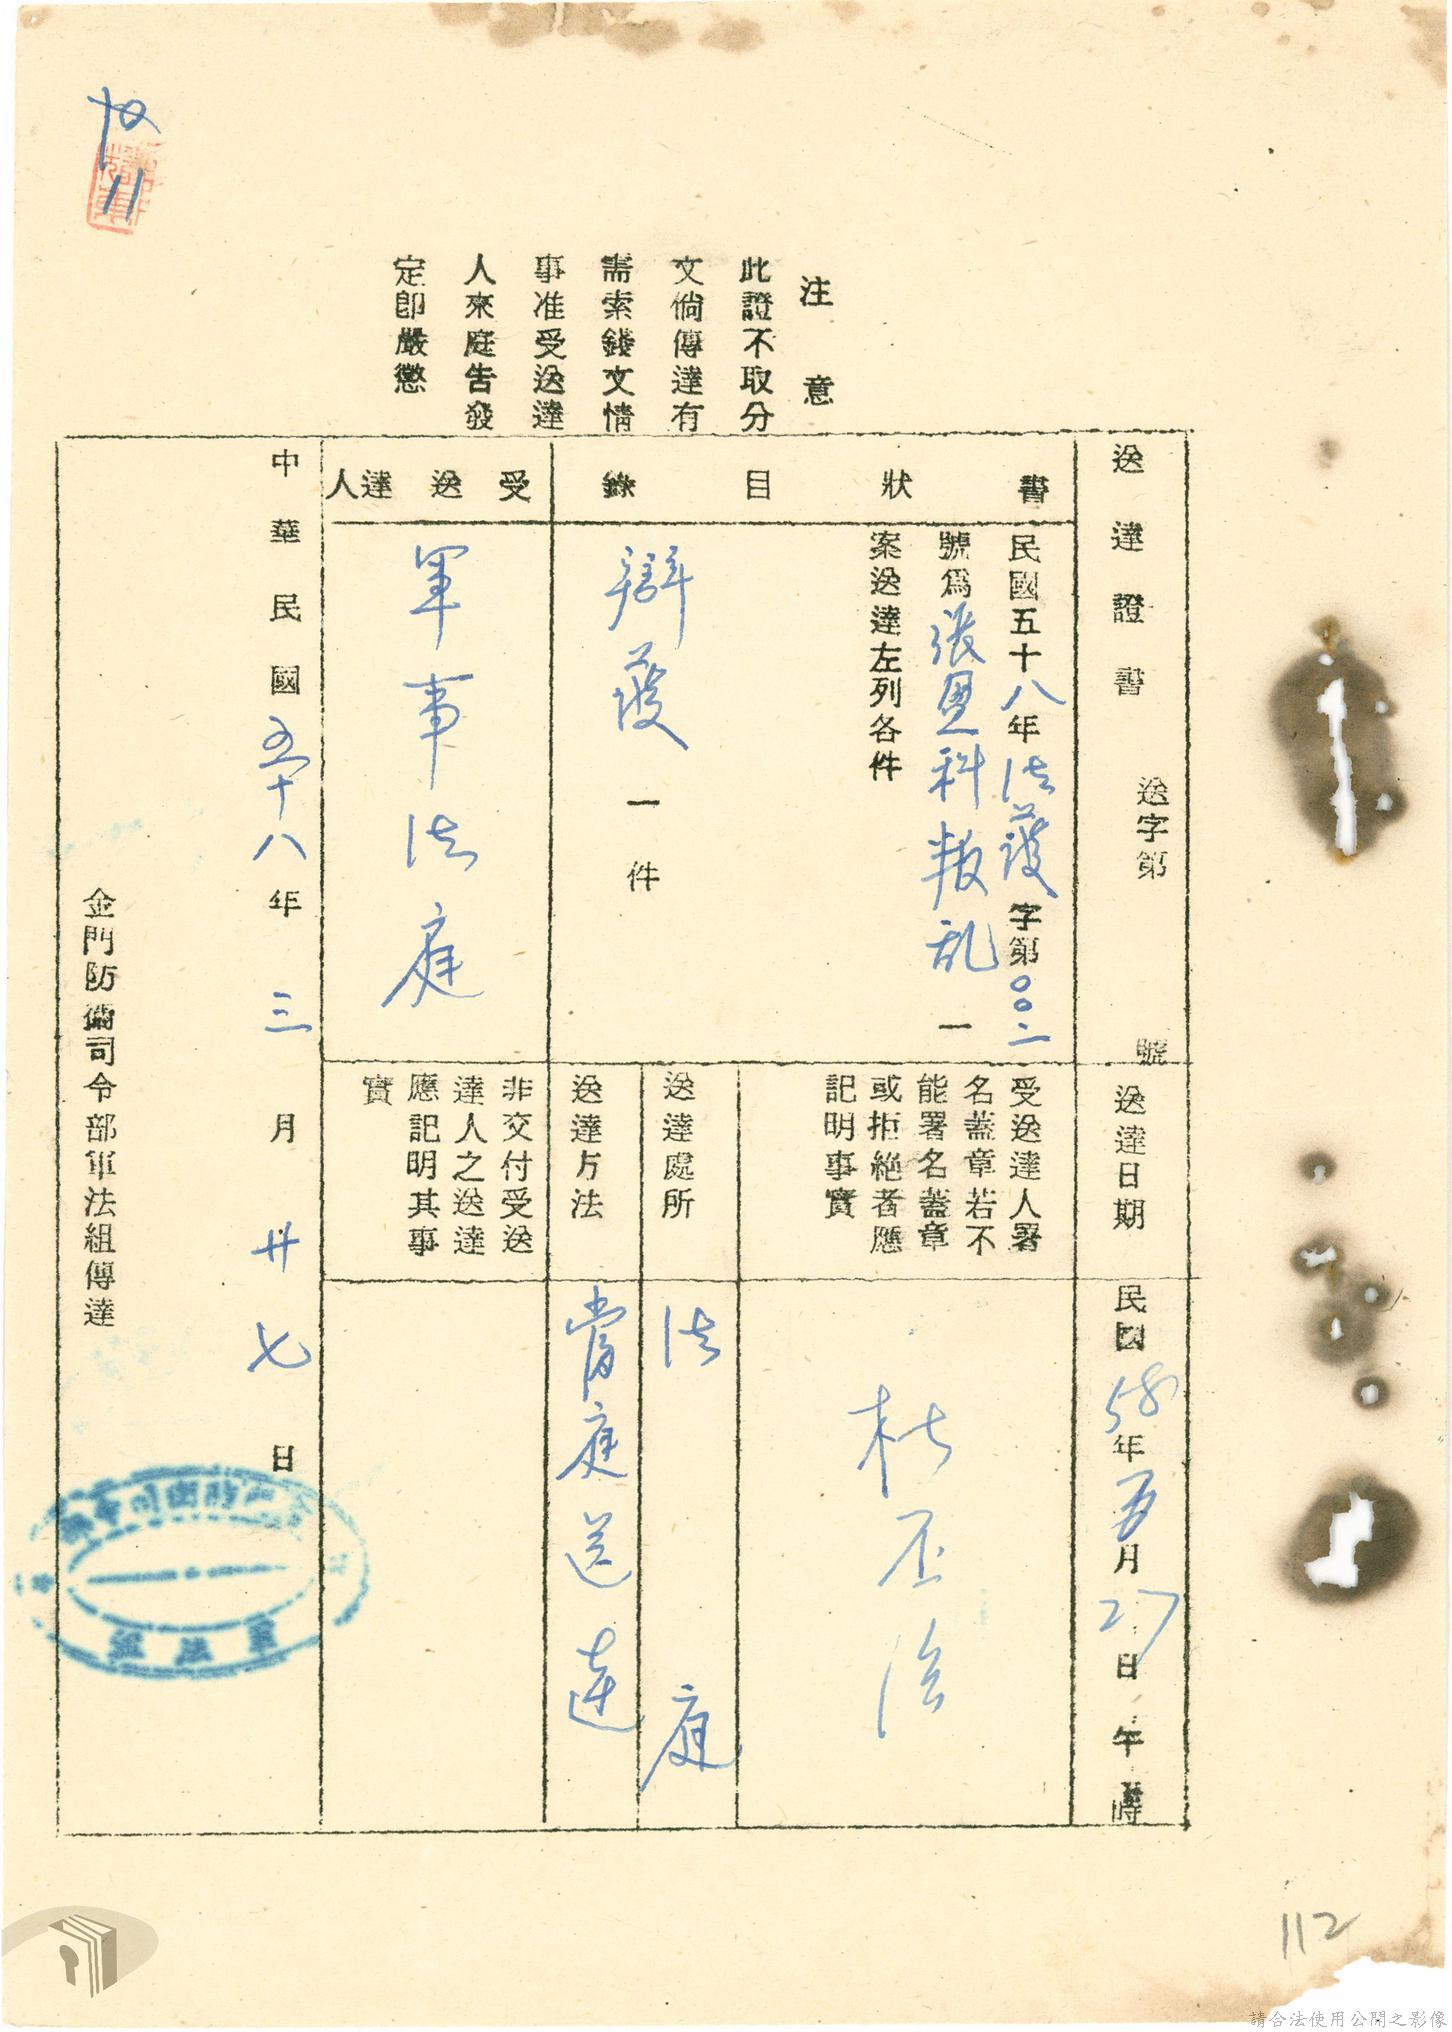 送達證書　送字第　　　號
送達日期
民國58年五月27日午　時
書狀目錄
民國五十八年法護字第００二
號為張恩科叛乱一
案送達左列各件
辯護一件
受送達人
軍事法庭
受送達人署
名蓋章若不
能署名蓋章
或拒絕者應
記明事實
杜丕洽
送達處所
法庭
送達方法
當庭送達
非交付受送
達人之送達
應記明其事
實
中華民國五十八年三月卅七日
金門防衛司令部軍法組傳達
注意
此證不取分
文倘傳達有
需索錢文情
事准受送達
人來庭告發
定即嚴懲
軍法組
11
112
請合法使用公開之影像